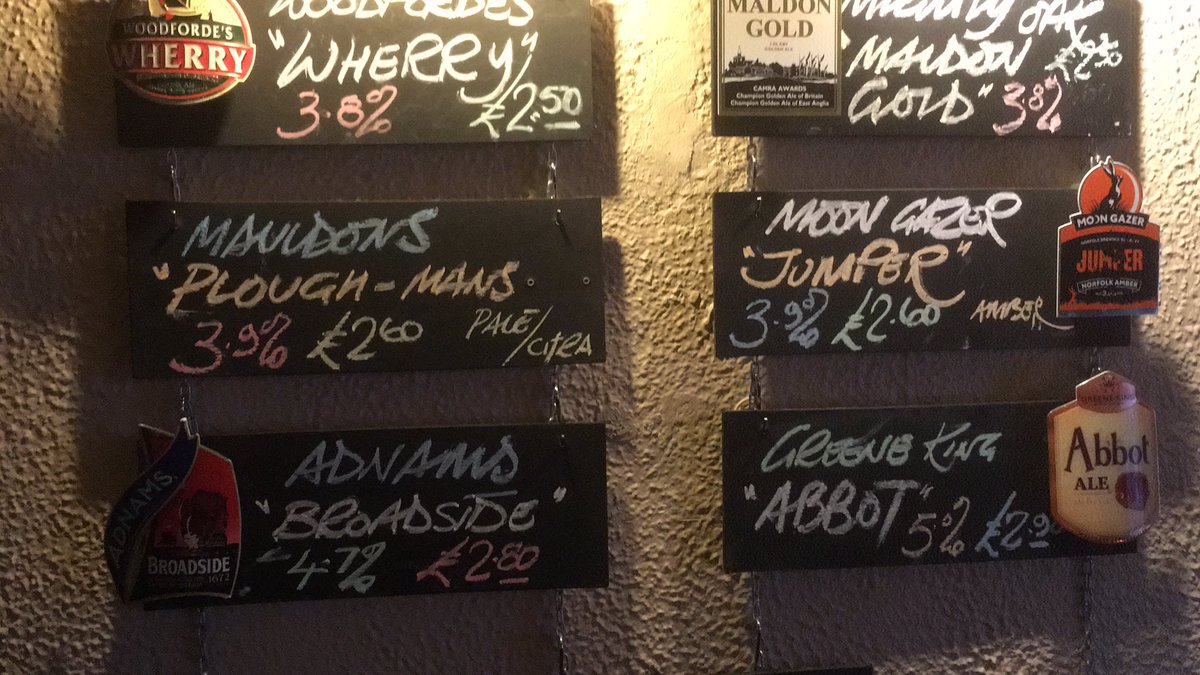 WOODFORDES
"WHERRY"
3.8% £2.50
WOODFORDE'S
WHERRY
MAULDONS
"PLOUGH-MANS
3.9% £2.60 PALE/CITRA
ADNAMS
"BROADSIDE"
4.7% £2.80
ADNAMS
BROADSIDE
1672
MIGHTY OAK
"MALDON £2.50
GOLD" 3.8%
MALDON
GOLD
CAMRA AWARDS
Champion Golden Ale of Britain
Champion Golden Ale of East Anglia
MOON GAZER
"JUMPER"
3.9% £2.60 AMBER
MOON GAZER
JUMPER
NORFOLK AMBER
GREENE KING
"ABBOT"
5% £2.90
GREENE KING
Abbot
ALE